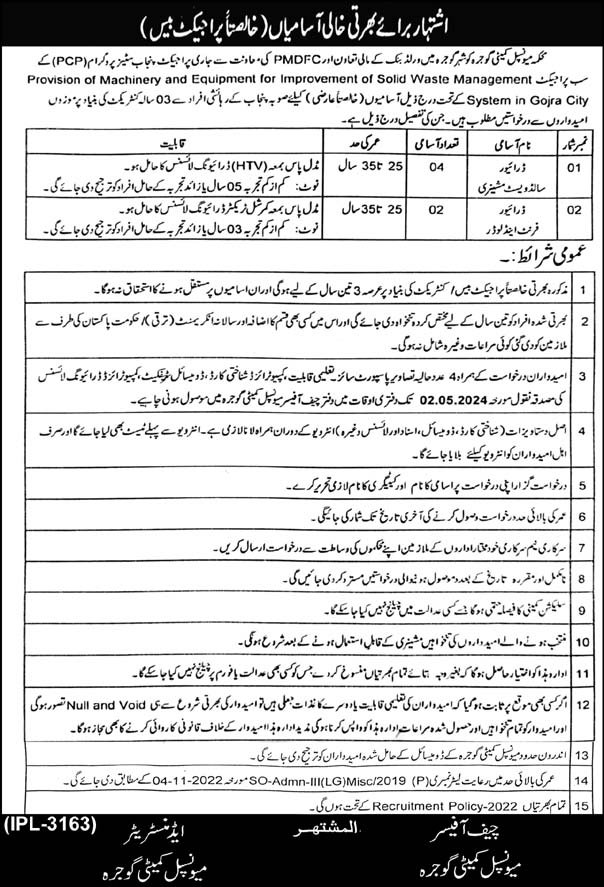 اشتہار برائے بھرتی خالی آسامیاں (خالصتاً پراجیکٹ بیس)
محکمہ میونسپل کمیٹی گوجرہ کو شہر گوجرہ میں ورلڈ بنک کے مالی تعاون اور PMDFC کی معاونت سے جاری پراجیکٹ پنجاب سٹیز پروگرام (PCP) کے
سب پراجیکٹ Provision of Machinery and Equipment for Improvement of Solid Waste Management
System in Gojra City کے تحت درج ذیل آسامیوں (خالصتاً عارضی) کیلئے صوبہ پنجاب کے رہائشی افراد سے 03 سالہ کنٹریکٹ کی بنیاد پر موزوں
امیدواروں سے درخواستیں مطلوب ہیں۔ جن کی تفصیل درج ذیل ہے۔
نمبر شمار نام آسامی تعداد آسامی عمر کی حد قابلیت
01 ڈرائیور سالڈ ویسٹ مشینری 04 25 تا 35 سال مڈل پاس بمعہ (HTV) ڈرائیونگ لائسنس کا حامل ہو۔
نوٹ: کم از کم تجربہ 05 سال یا زائد تجربہ کے حامل افراد کو ترجیح دی جائے گی۔
02 ڈرائیور فرنٹ اینڈ لوڈر 02 25 تا 35 سال مڈل پاس بمعہ کمرشل ٹریکٹر ڈرائیونگ لائسنس کا حامل ہو۔
نوٹ: کم از کم تجربہ 03 سال یا زائد تجربہ کے حامل افراد کو ترجیح دی جائے گی۔
عمومی شرائط:۔
1 مذکورہ بھرتی خالصتاً پراجیکٹ بیس / کنٹریکٹ کی بنیاد پر عرصہ 3 تین سال کے لیے ہوگی اور ان اسامیوں پر مستقل ہونے کا استحقاق نہ ہوگا۔
2 بھرتی شدہ افراد کو تین سال کے لیے مختص کردہ تنخواہ دی جائے گی اور اس میں کسی بھی قسم کا اضافہ اور سالانہ انکریمنٹ (ترقی) / حکومت پاکستان کی طرف سے
ملازمین کو دی گئی کوئی مراعات وغیرہ شامل نہ ہوگی۔
3 امیدواران درخواست کے ہمراہ 4 عدد حالیہ تصاویر پاسپورٹ سائز۔ تعلیمی قابلیت، کمپیوٹرائزڈ شناختی کارڈ، ڈومیسائل سرٹیفکیٹ، کمپیوٹرائزڈ ڈرائیونگ لائسنس
کی مصدقہ نقول مورخہ 02.05.2024 تک دفتری اوقات میں دفتر چیف آفیسر میونسپل کمیٹی گوجرہ میں موصول ہونی چاہیے۔
4 اصل دستاویزات (شناختی کارڈ، ڈومیسائل، اسناد اور لائسنس وغیرہ) انٹرویو کے دوران ہمراہ لانا لازمی ہے۔ انٹرویو سے پہلے ٹیسٹ بھی لیا جائے گا اور صرف
اہل امیدواران کو انٹرویو کیلئے بلایا جائے گا۔
5 درخواست گزار اپنی درخواست پر اسامی کا نام اور کیٹیگری کا نام لازمی تحریر کرے۔
6 عمر کی بالائی حد درخواست وصول کرنے کی آخری تاریخ تک شمار کی جائیگی۔
7 سرکاری نیم سرکاری خود مختار اداروں کے ملازمین اپنے محکموں کی وساطت سے درخواست ارسال کریں۔
8 نامکمل اور مقررہ تاریخ کے بعد موصول ہونیوالی درخواستیں مسترد کر دی جائیں گی۔
9 سلیکشن کمیٹی کا فیصلہ حتمی ہوگا جسے کسی عدالت میں چیلنج نہیں کیا جا سکے گا۔
10 منتخب ہونے والے امیدواروں کی تنخواہیں مشینری کے قابل استعمال ہونے کے بعد شروع ہونگی۔
11 ادارہ ہذا کو اختیار حاصل ہوگا کہ بغیر وجہ بتائے تمام بھرتیاں منسوخ کر دے جس کو کسی بھی عدالت یا فورم پر چیلنج نہیں کیا جا سکے گا۔
12 اگر کسی بھی موقع پر ثابت ہو گیا کہ امیدواران کی تعلیمی قابلیت یا دوسرے کاغذات جعلی ہیں تو امیدوار کی بھرتی شروع سے ہی Null and Void تصور ہوگی
اور امیدوار کو تمام تنخواہیں اور حصول شدہ مراعات ادارہ ہذا کو واپس کرنا ہوگی مزید ادارہ ہذا امیدوار کے خلاف قانونی کاروائی کرنے کا بھی مجاز ہوگا۔
13 اندرون حدود میونسپل کمیٹی گوجرہ کے ڈومیسائل کے حامل شدہ امیدواران کو ترجیح دی جائے گی۔
14 عمر کی بالائی حد میں رعایت لیٹر نمبری SO-Admn-III(LG)Misc/2019 (P) مورخہ 04-11-2022 کے مطابق دی جائے گی۔
15 تمام بھرتیاں Recruitment Policy-2022 کے تحت ہوں گی۔
چیف آفیسر المشتہر ایڈمنسٹریٹر (IPL-3163)
میونسپل کمیٹی گوجرہ میونسپل کمیٹی گوجرہ